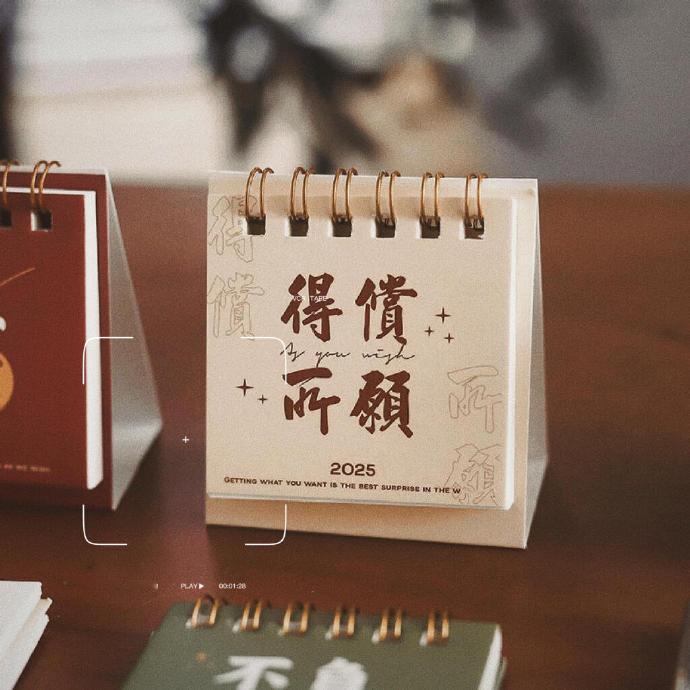 得償
得償
As you wish
所願
所願
2025
GETTING WHAT YOU WANT IS THE BEST SURPRISE IN THE W
PLAY▶ 00:01:28
不負